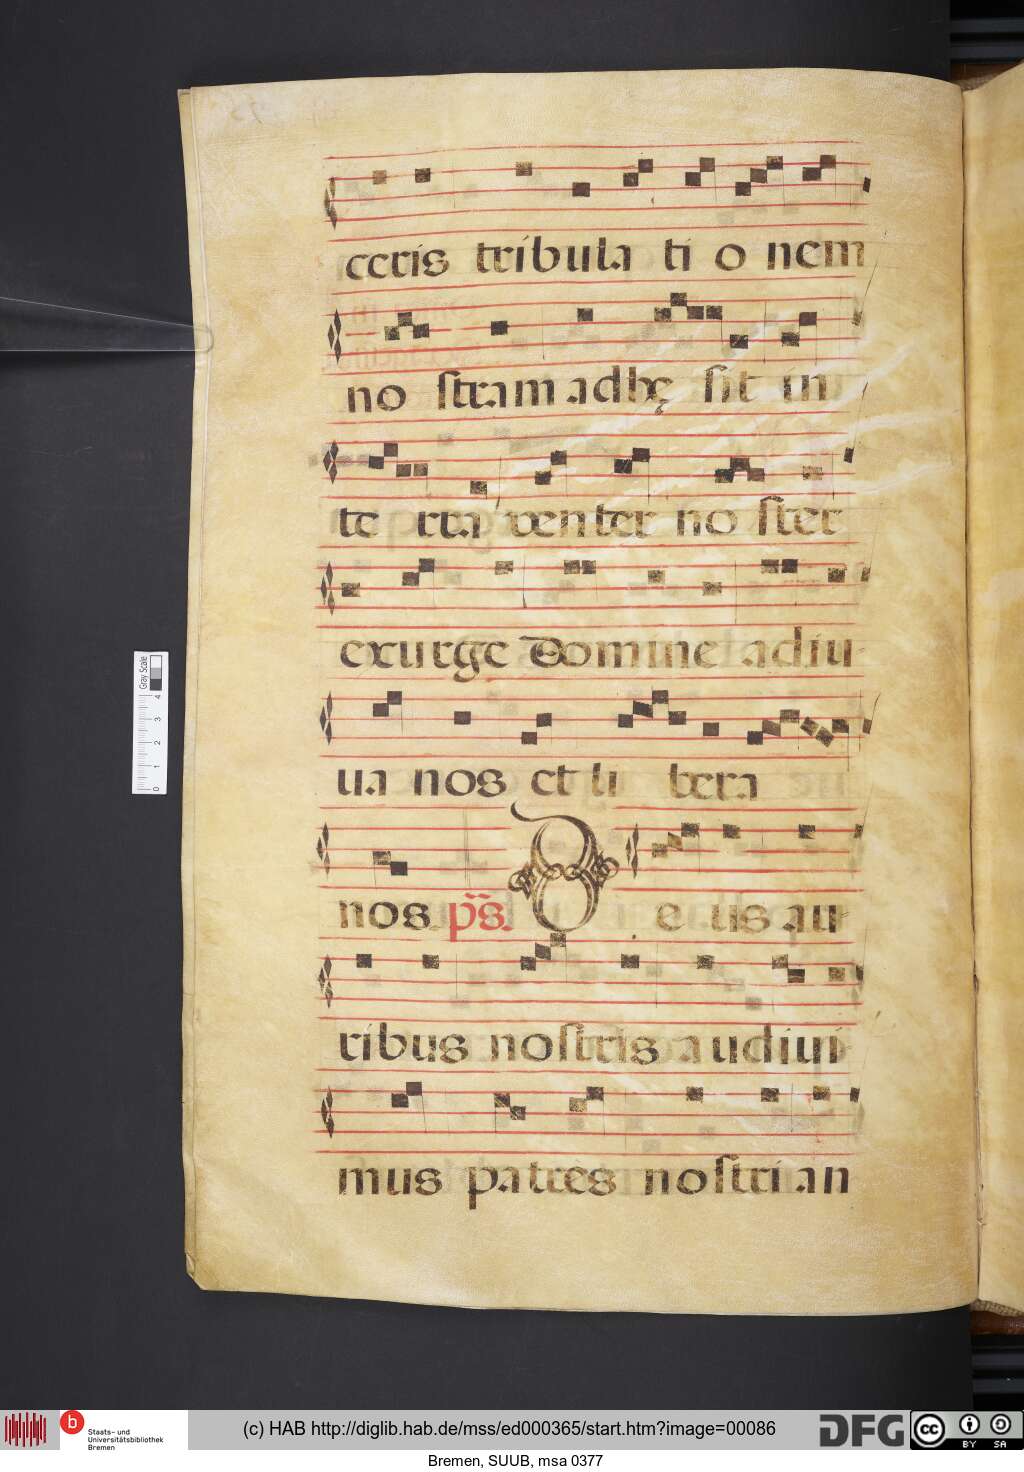 ceris tribula ti o nem
no stram adhę sit in
te rra venter no ster
exurge Domine adiu
ua nos et li bera
nos. ps. D e us au
ribus nostris audiui
mus patres nostri an
Gray Scale
0 1 2 3 4
b Staats- und
Universitätsbibliothek
Bremen
(c) HAB http://diglib.hab.de/mss/ed000365/start.htm?image=00086
DFG
cc BY SA
Bremen, SUUB, msa 0377